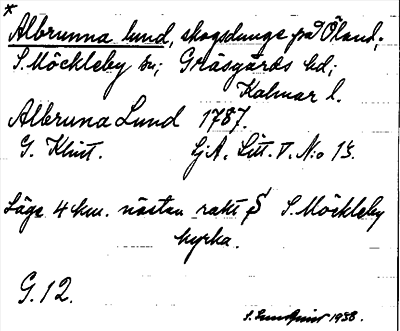 *
Albrunna lund, skogsdunge på Öland;
S. Möckleby sn; Gräsgårds hd;
Kalmar l.
Albruna Lund 1787.
G. Klint. SjA. Litt. V. N:o 15.
Läge 4 km. nästan rakt S S. Möckleby
kyrka.
G.12.
S. 1938.